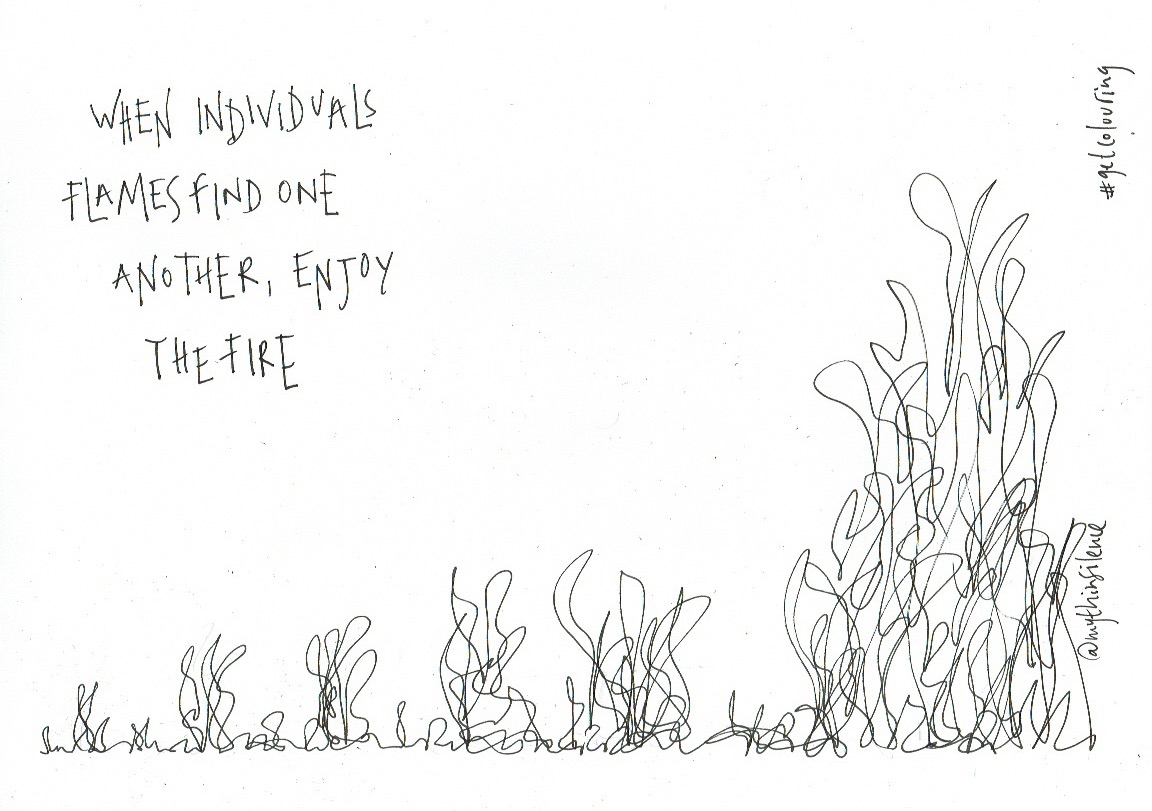 WHEN INDIVIDUALS
FLAMES FIND ONE
ANOTHER, ENJOY
THE FIRE
#getcolouring
@mythinsilence